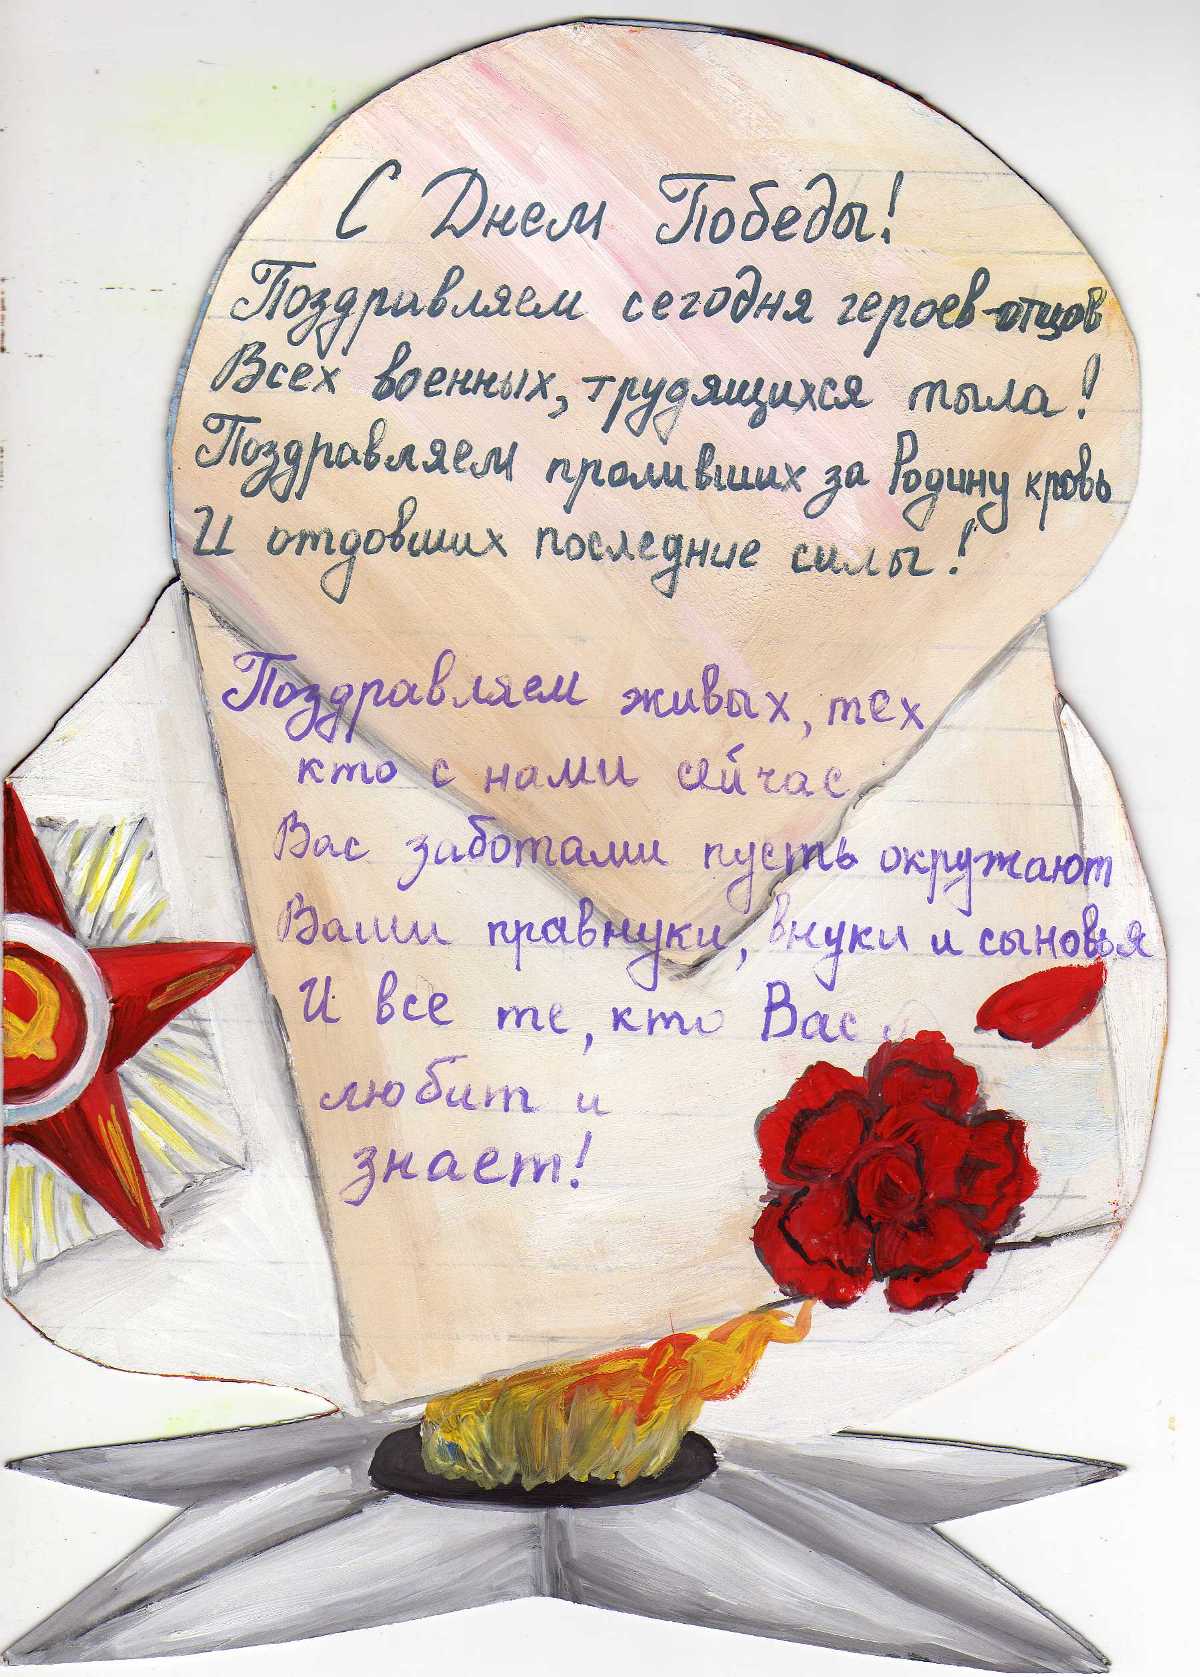 С Днем Победы!
Поздравляем сегодня героев-отцов
Всех военных, трудящихся тыла!
Поздравляем проливших за Родину кровь
И отдовших последние силы!
Поздравляем живых, тех
кто с нами сейчас
Вас заботами пусть окружают
Ваши правнуки, внуки и сыновья
И все те, кто Вас
любит и
знает!